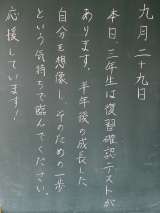 九月二十九日
本日、三年生は復習確認テストが
あります。半年後の成長した
自分を想像し、そのための一歩
という気持ちで臨んでください。
応援しています！